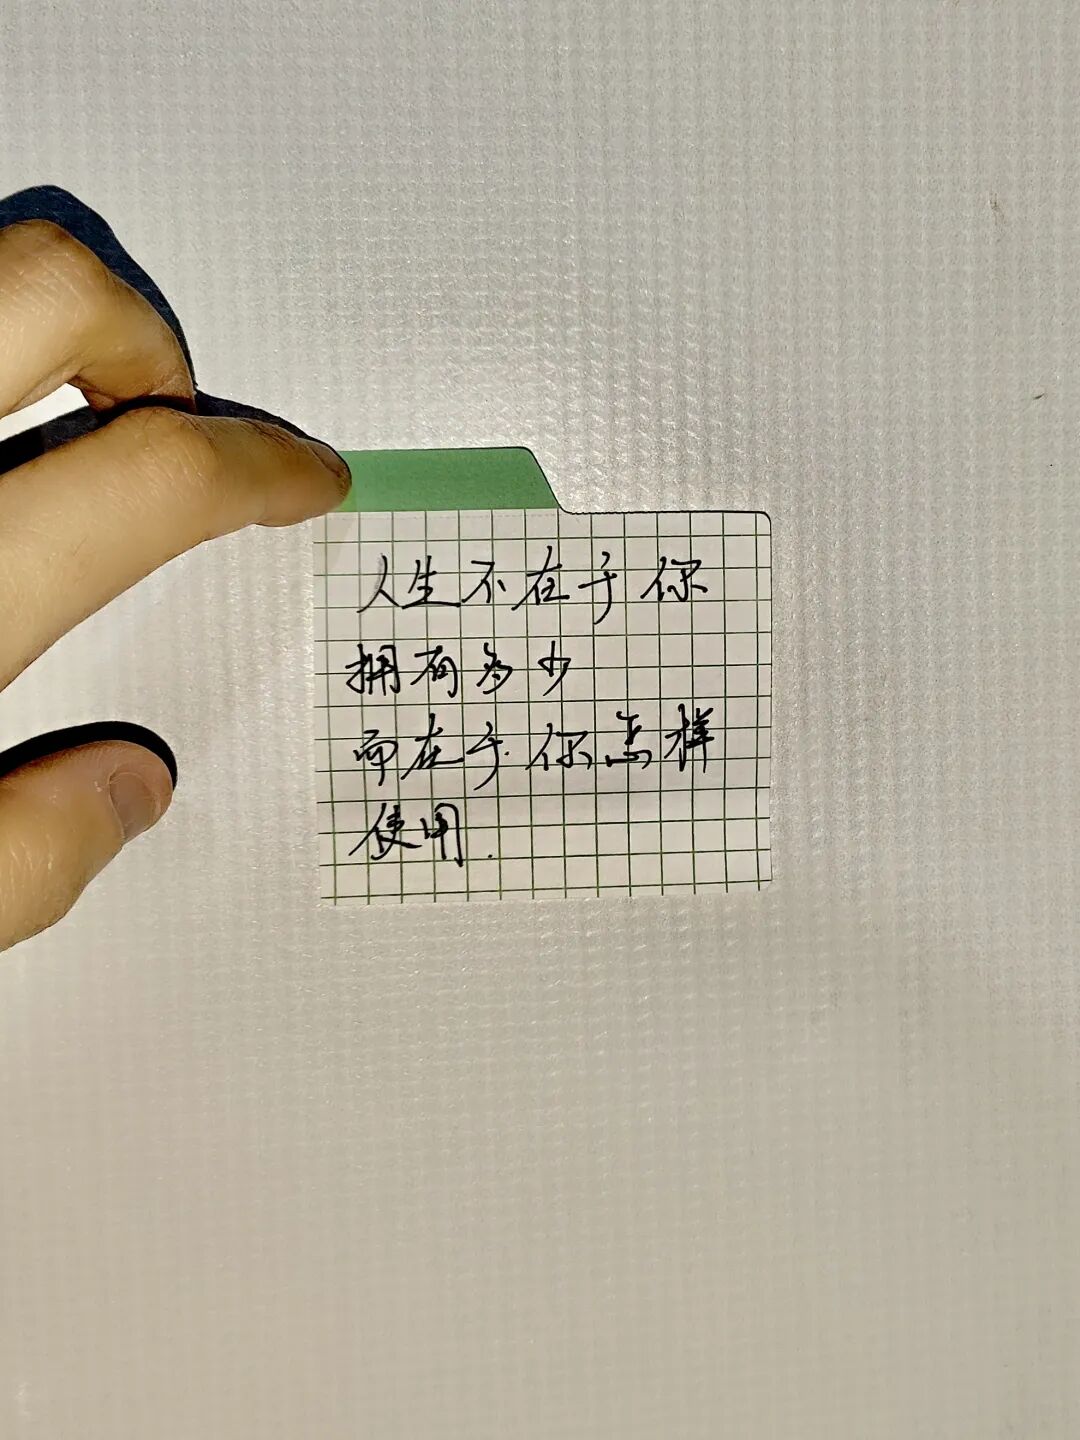 人生不在于你
拥有多少
而在于你怎样
使用.